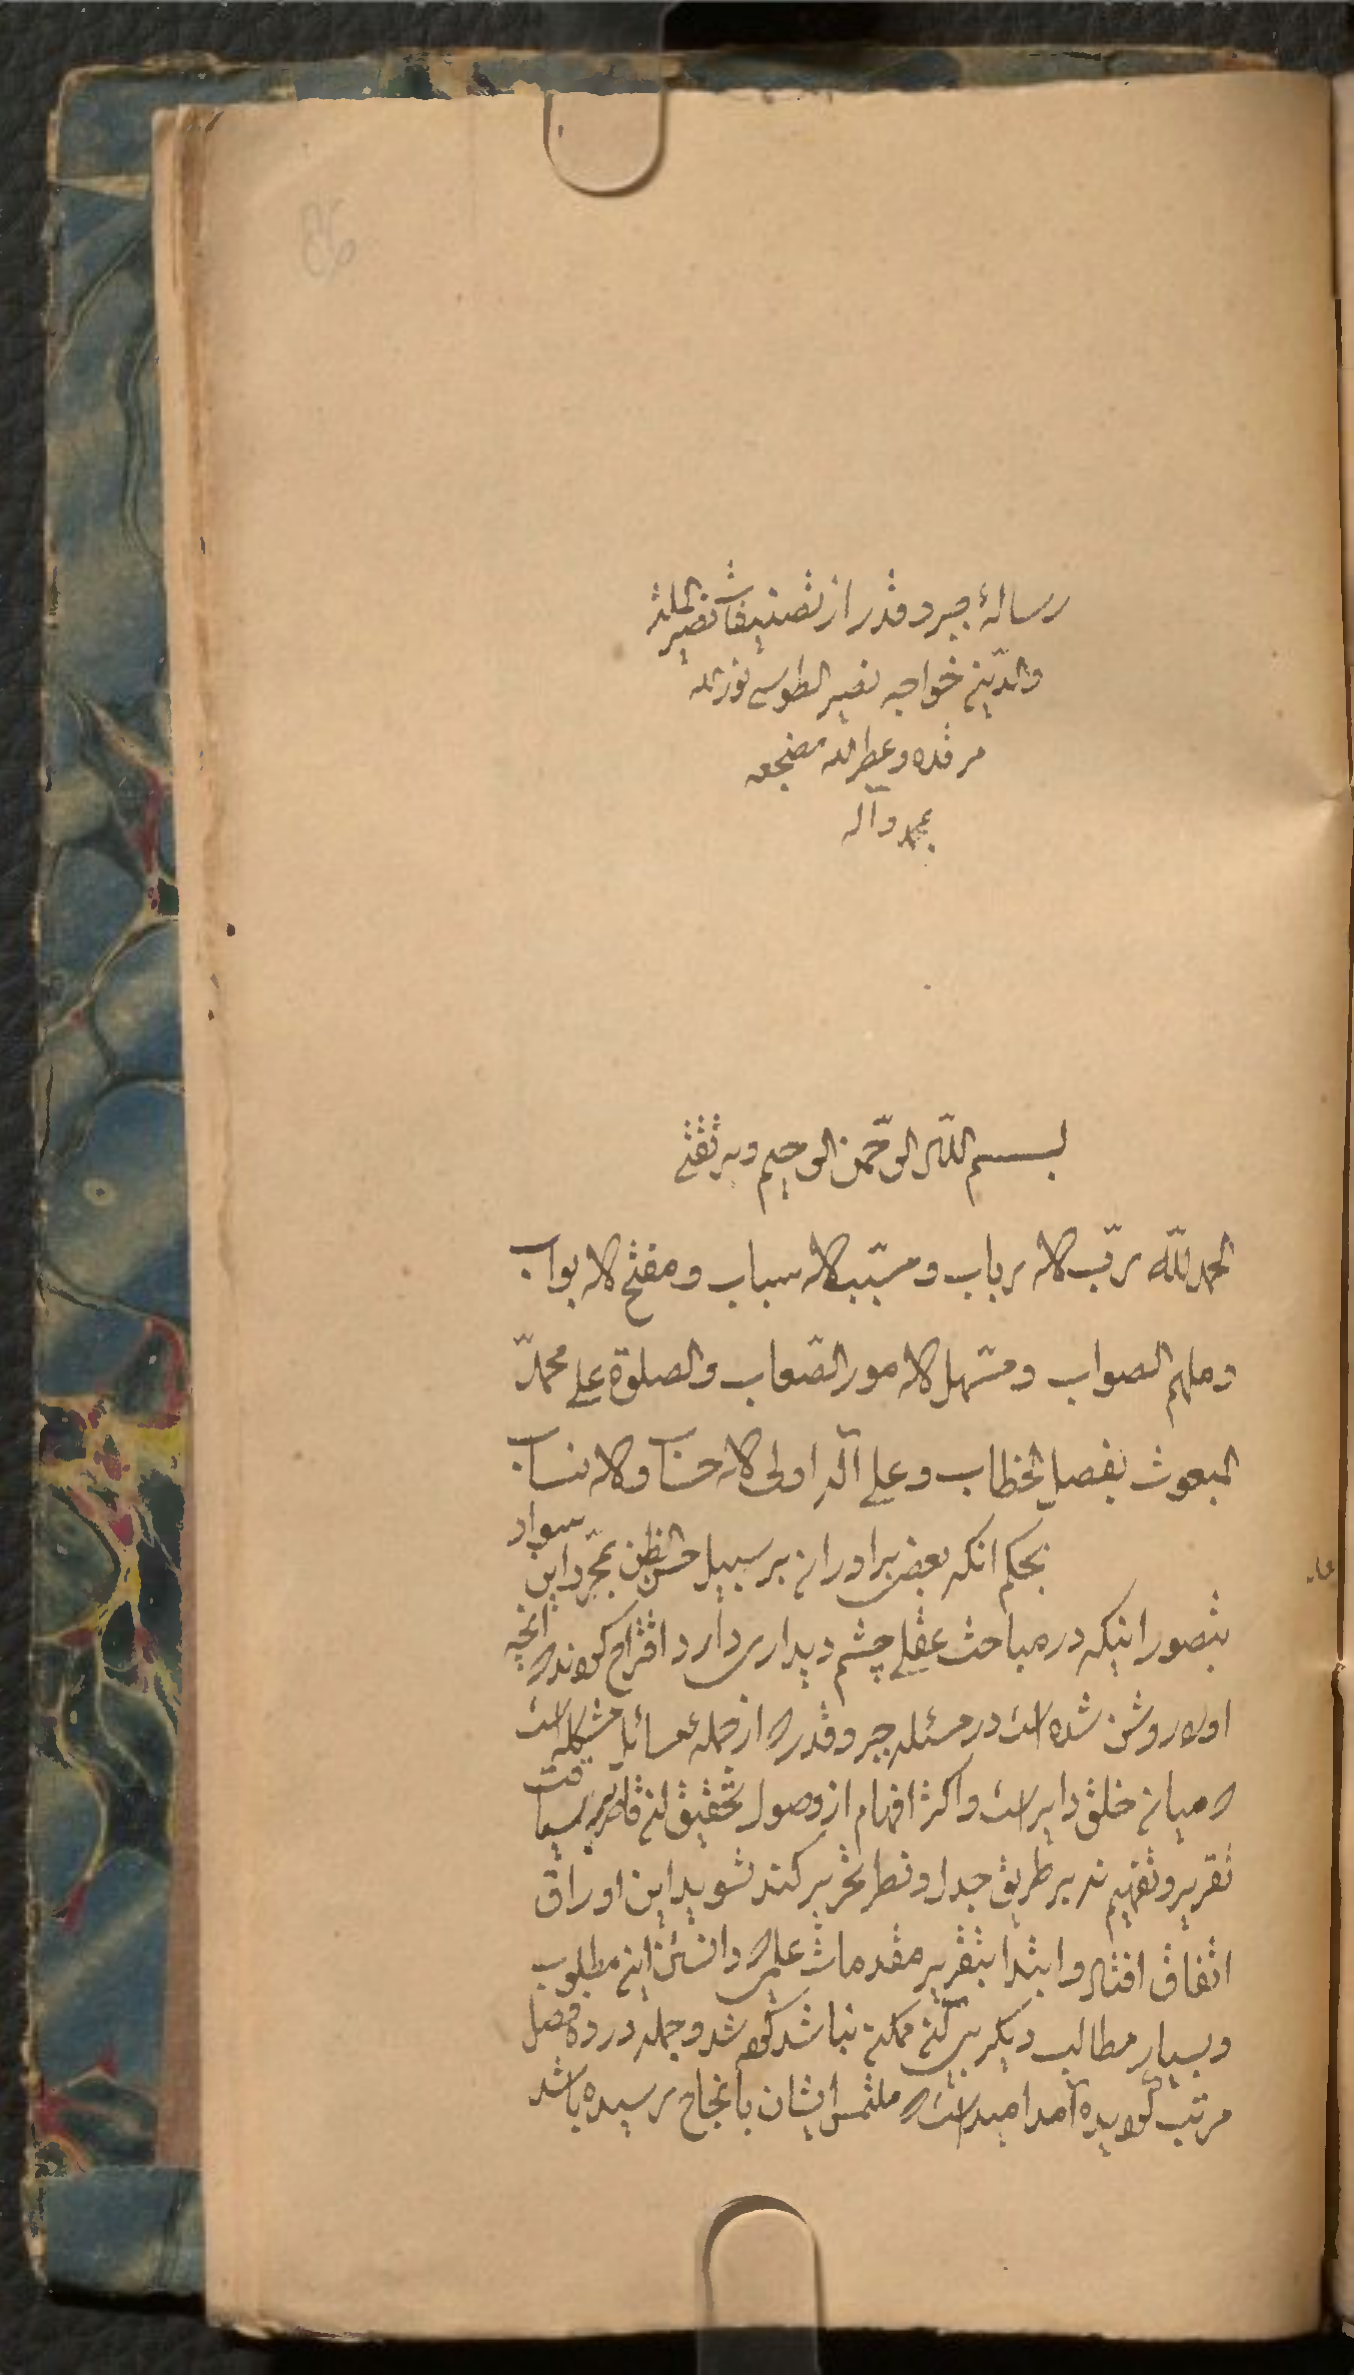 86
رسالهٔ جبر و قدر از تصنیفات نصیر الملة
والدّین خواجه نصیر الطوسی نور الله
مرقده و عطر الله مضجعه
بمحمد وآله
بسم الله الرحمن الرحیم وبه ثقتی
الحمد لله ربّ الارباب ومسبّب الاسباب ومفتح الابواب
وملهم الصواب ومسّهل الامور الصّعاب والصلوة علی محمّد
المبعوث بفصل الخطاب وعلی آله اولی الاحساب والانساب
بحکم انکه بعضی برادران بر سبیل حسن الظن بمحرّر این سواد
بتصور اینکه در مباحث عقلی چشم دیداری دارد اقتراح کردند که انچه
او را روشن شده است در مسئله جبر و قدر که از جمله مسائل مشکله است
که میان خلق دایر است و اکثر افهام از وصول بتحقیق ان قاصر بر سیاقت
تقریر و تفهیم نه بر طریق جدل و نظر تحریر کند تسوید این اوراق
اتفاق افتاد و ابتدا بتقریر مقدمات علمی که دانستن این مطلوب
و بسیار مطالب دیگر بی ان ممکن نباشد کرده شد و جمله در ده فصل
مرتب گردیده آمد امید است که ملتمس ایشان بانجاح رسیده باشد